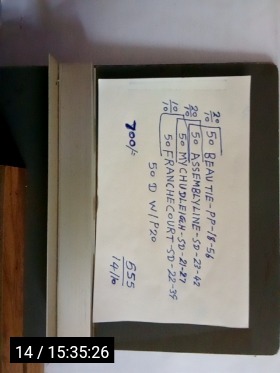 20/10 50 BEAUTIE-PP-18-56
20/10 50 ASSEMBLYLINE-SD-23-42
10/10 50 MYCHUDLEIGH-SD-21-27
50 FRANCHECOURT-SD-22-39
50 D W/P20
700/0
555
14/10
14 / 15:35:26